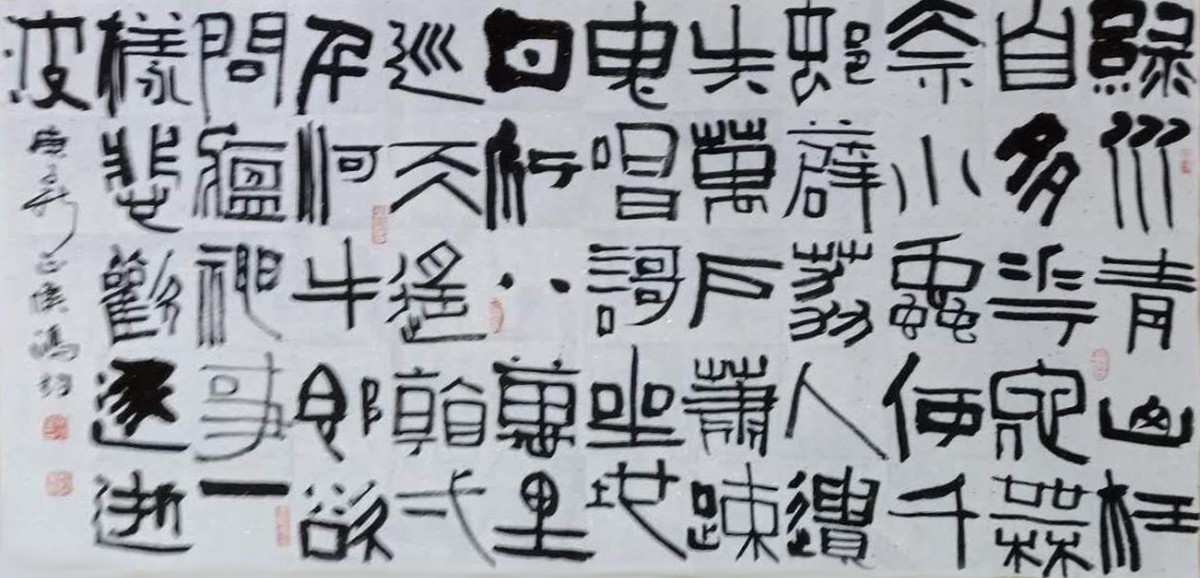 綠水青山枉
自多華佗無
奈小蟲何千
邨薜荔人遺
矢萬戶蕭踈
鬼唱謌坐地
日行八萬里
巡天遙看弌
千河牛郎欲
問瘟神事一
樣悲歡逐逝
波
庚子新正